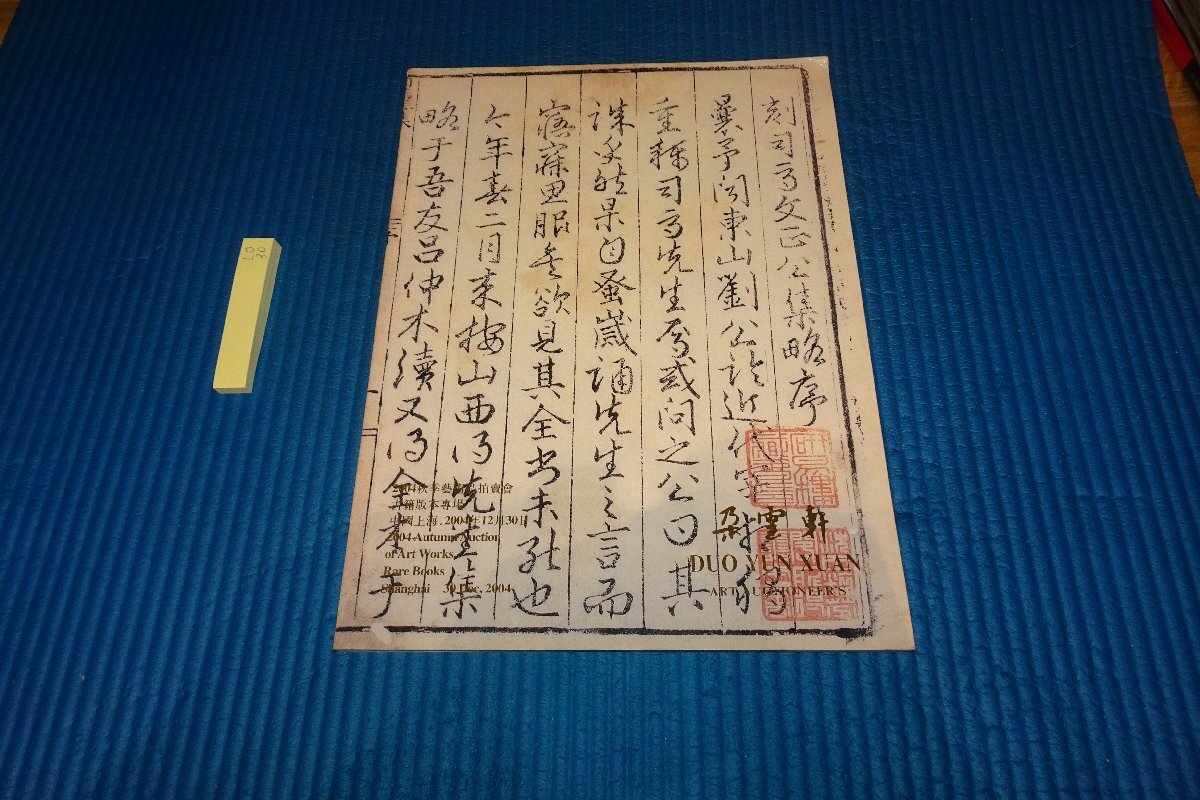 刻司馬文正公集略序
曩予聞東山劉公論近代
重稱司馬先生焉或問之公曰其
果自蚤歲誦先生之言而
寤寐思服每欲見其全書未能也
今年春二月来按山西得先生集
略于吾友呂仲木續又得全本于
2004秋季藝術品拍賣會
古籍版本專場
中國上海.2004年12月30日
2004 Autumn Auction
of Art Works
Rare Books
Shanghai 30 Dec. 2004
朵雲軒
DUO YUN XUAN
ART AUCTIONEER'S